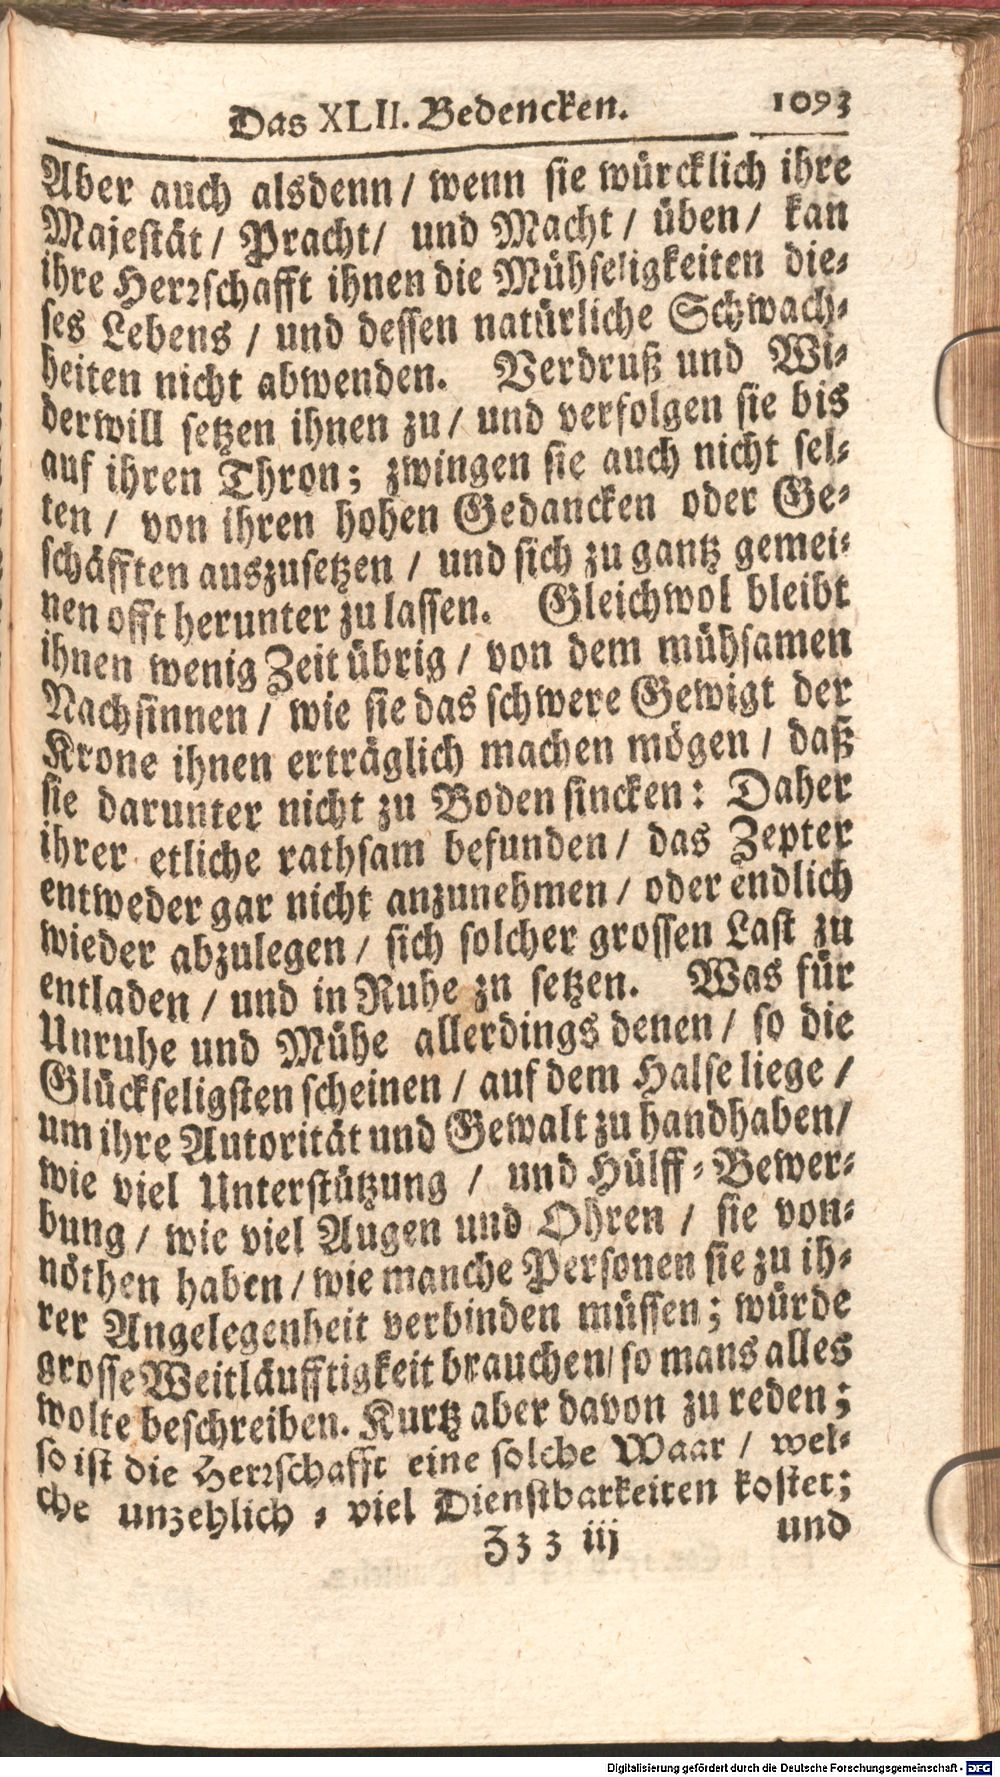 Das XLII. Bedencken. 1093
Aber auch alsdenn / wenn sie würcklich ihre
Majestät / Pracht / und Macht / üben / kan
ihre Herrschafft ihnen die Mühseligkeiten die-
ses Lebens / und dessen natürliche Schwach-
heiten nicht abwenden. Verdruß und Wi-
derwill setzen ihnen zu / und verfolgen sie bis
auf ihren Thron; zwingen sie auch nicht sel-
ten / von ihren hohen Gedancken oder Ge-
schäfften auszusetzen / und sich zu gantz gemei-
nen offt herunter zu lassen. Gleichwol bleibt
ihnen wenig Zeit übrig / von dem mühsamen
Nachsinnen / wie sie das schwere Gewigt der
Krone ihnen erträglich machen mögen / daß
sie darunter nicht zu Boden sincken: Daher
ihrer etliche rathsam befunden / das Zepter
entweder gar nicht anzunehmen / oder endlich
wieder abzulegen / sich solcher grossen Last zu
entladen / und in Ruhe zn setzen. Was für
Unruhe und Mühe allerdings denen / so die
Glückseligsten scheinen / auf dem Halse liege /
um ihre Autorität und Gewalt zu handhaben /
wie viel Unterstützung / und Hülff-Bewer-
bung / wie viel Augen und Ohren / sie von-
nöthen haben / wie manche Personen sie zu ih-
rer Angelegenheit verbinden müssen; würde
grosse Weitläufftigkeit brauchen / so mans alles
wolte beschreiben. Kurtz aber davon zu reden;
so ist die Herrschafft eine solche Waar / wel-
che unzehlich-viel Dienstbarkeiten kostet;
Zzz iij und
Digitalisierung gefördert durch die Deutsche Forschungsgemeinschaft - DFG